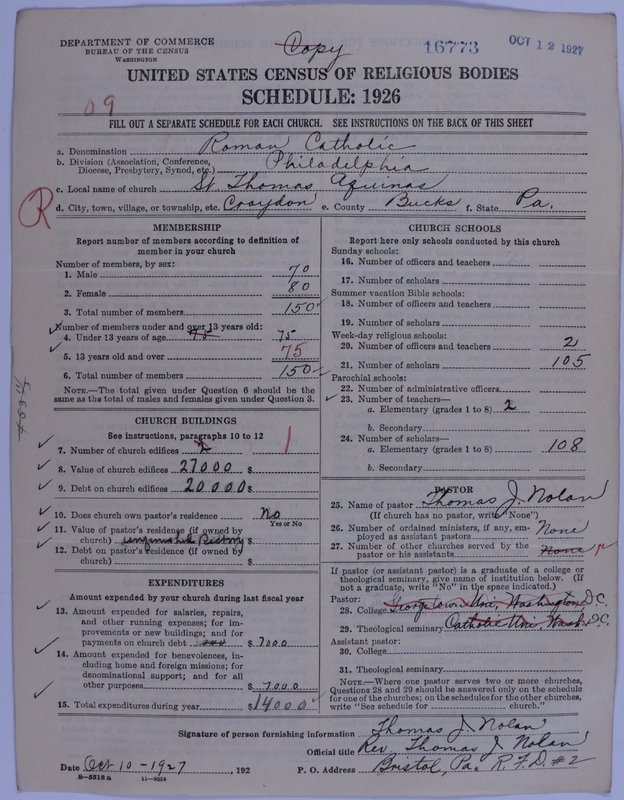 DEPARTMENT OF COMMERCE
BUREAU OF THE CENSUS
WASHINGTON
Copy
16773
OCT 12 1927
UNITED STATES CENSUS OF RELIGIOUS BODIES
SCHEDULE: 1926
09
FILL OUT A SEPARATE SCHEDULE FOR EACH CHURCH. SEE INSTRUCTIONS ON THE BACK OF THIS SHEET
a. Denomination Roman Catholic
b. Division (Association, Conference, Diocese, Presbytery, Synod, etc.) Philadelphia
c. Local name of church St Thomas Aquinas
R
d. City, town, village, or township, etc. Croydon e. County Bucks f. State Pa.
MEMBERSHIP
Report number of members according to definition of
member in your church
Number of members, by sex:
1. Male 70
2. Female 80
3. Total number of members 150
Number of members under and over 13 years old:
4. Under 13 years of age 75 75
5. 13 years old and over 75
6. Total number of members 150
NOTE.—The total given under Question 6 should be
same as the total of males and females given under Question 3.
CHURCH BUILDINGS
See instructions, paragraphs 10 to 12
7. Number of church edifices 2 1
8. Value of church edifices 27000 $
9. Debt on church edifices 20000 $
10. Does church own pastor's residence No
Yes or No
11. Value of pastor's residence (if owned by
church) unfinished Rectory $
12. Debt on pastor's residence (if owned by
church) $
EXPENDITURES
Amount expended by your church during last fiscal year
13. Amount expended for salaries, repairs,
and other running expenses; for im-
provements or new buildings; and for
payments on church debt $ 7000
14. Amount expended for benevolences, in-
cluding home and foreign missions; for
denominational support; and for all
other purposes $ 7000
15. Total expenditures during year $ 14000
CHURCH SCHOOLS
Report here only schools conducted by this church
Sunday schools:
16. Number of officers and teachers
17. Number of scholars
Summer vacation Bible schools:
18. Number of officers and teachers
19. Number of scholars
Week-day religious schools:
20. Number of officers and teachers 2
21. Number of scholars 105
Parochial schools:
22. Number of administrative officers
23. Number of teachers—
a. Elementary (grades 1 to 8) 2
b. Secondary
24. Number of scholars—
a. Elementary (grades 1 to 8) 108
b. Secondary
PASTOR
25. Name of pastor Thomas J. Nolan
(If church has no pastor, write "None")
26. Number of ordained ministers, if any, em-
ployed as assistant pastors None
27. Number of other churches served by the
pastor or his assistants None
If pastor (or assistant pastor) is a graduate of a college or
theological seminary, give name of institution below. (If
not a graduate, write "No" in the space indicated.)
Pastor:
28. College Georgetown Uni, Washington, D.C.
29. Theological seminary Catholic Uni. Wash. D.C.
Assistant pastor:
30. College
31. Theological seminary
NOTE.—Where one pastor serves two or more churches,
Questions 28 and 29 should be answered only on the schedule
for one of the churches; on the schedules for the other churches,
write "See schedule for church."
Signature of person furnishing information Thomas J. Nolan
Official title Rev. Thomas J Nolan
Date Oct 10 - 1927, 192 P. O. Address Bristol, Pa. R.F.D. #2
8—5518 a 11—9054